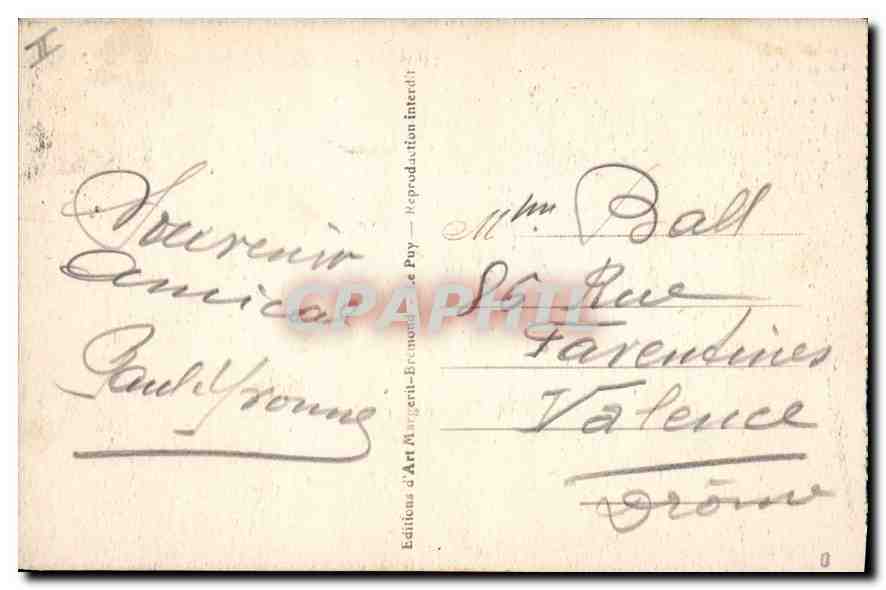 II
Souvenir
amical
Paul Yvonne
Editions d'Art Margerit-Bremond - Le Puy — Reproduction interdite
Mme Ball
86 Rue
Farentines
Valence
Drôme
CPAPHIL
0